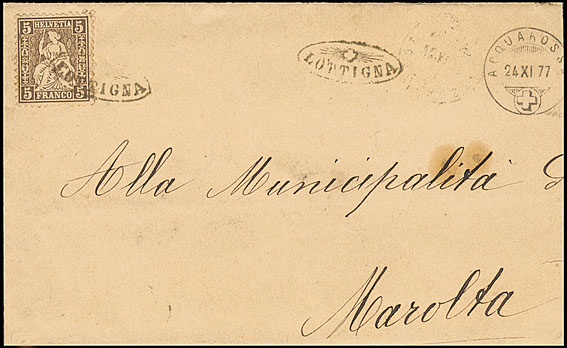 5 HELVETIA 5
5 FRANCO 5
LOTTIGNA
LOTTIGNA
ACQUAROSSA
24 XI 77
Alla Municipalità
Marolta